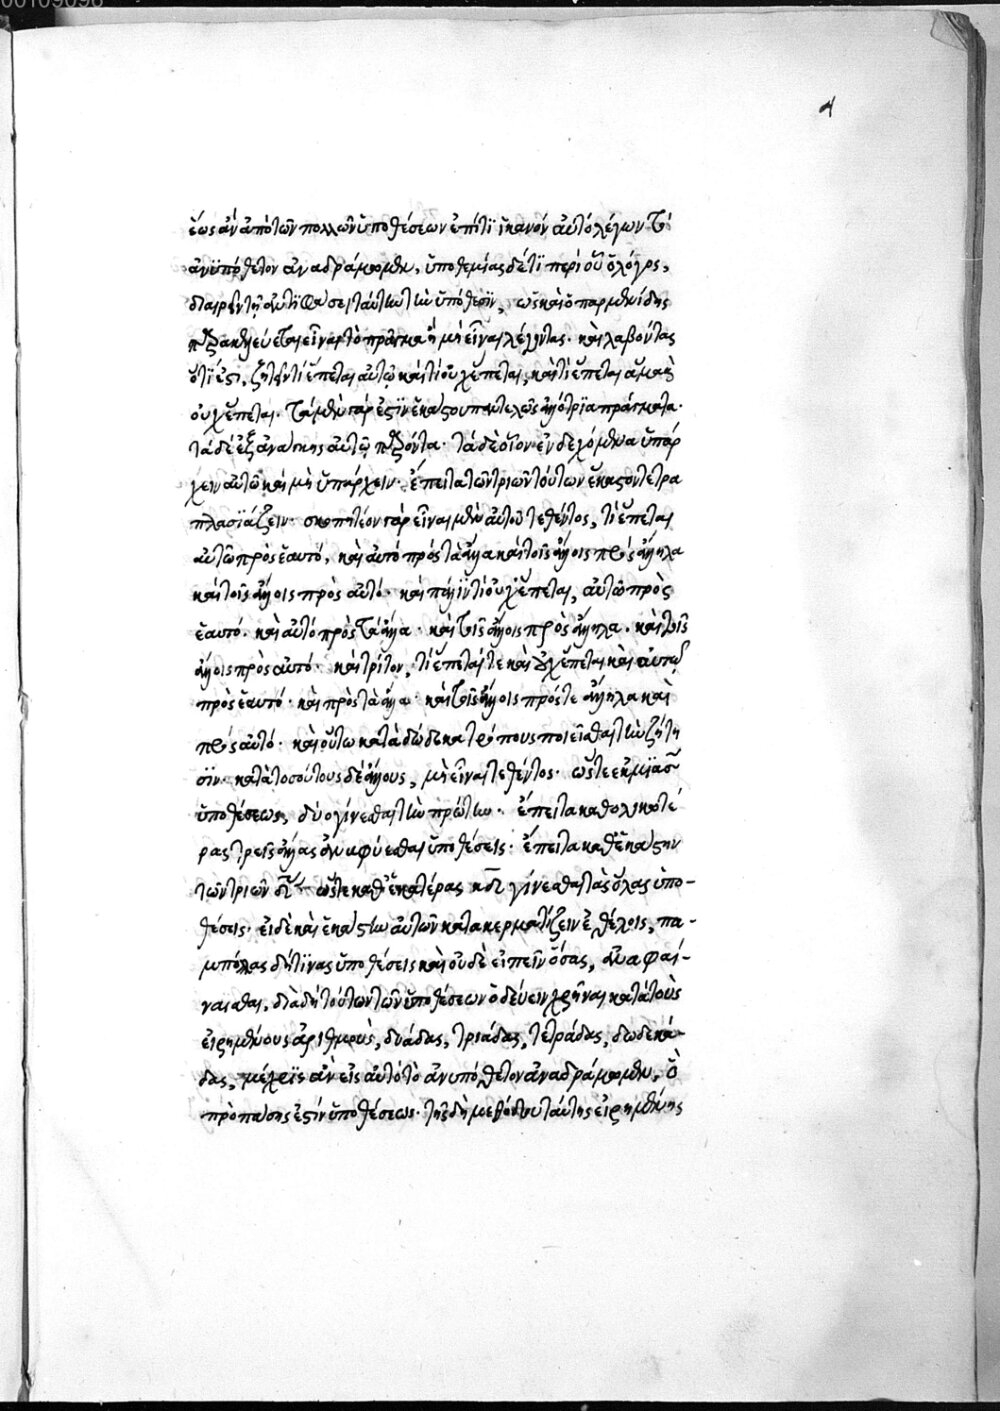 00109096
4
ἕως ἂν ἀπὸ τῶν πολλῶν ὑποθέσεων ἐπί τι ἱκανὸν αὐτὸ λέγων τὸ
ἀνυπόθετον ἀναδράμωμεν. ὑποθεμίας δέ τι περὶ οὗ ὁ λόγος,
διαιρεῖν τῇ ἀντιφάσει ταύτην τὴν ὑπόθεσιν, ὡς καὶ ὁ παρμενίδης
εἶναι τὸ πρᾶγμα ἢ μὴ εἶναι λέγοντας. καὶ λαβόντας
ὅτι ἔστι, ζητεῖν τί ἕπεται αὐτῷ καὶ τί οὐχ ἕπεται, καὶ τί ἕπεται ἅμα καὶ
οὐχ ἕπεται. τὰ μὲν γάρ ἐστιν ἑκάστου παντελῶς ἀλλότρια πράγματα.
τὰ δὲ ἐξ ἀνάγκης αὐτῷ προσόντα. τὰ δὲ οἷον ἐνδεχόμενα ὑπάρ
χειν αὐτῷ καὶ μὴ ὑπάρχειν. ἔπειτα τῶν τριῶν τούτων ἕκαστον τετρα
πλασιάζειν. σκεπτέον γὰρ εἶναι μὲν αὐτοῦ τεθέντος, τί ἕπεται
αὐτῷ πρὸς ἑαυτό, καὶ αὐτὸ πρὸς τὰ ἄλλα καὶ τοῖς ἄλλοις πρὸς ἄλληλα
καὶ τοῖς ἄλλοις πρὸς αὐτό. καὶ πάλιν τί οὐχ ἕπεται, αὐτῷ πρὸς
ἑαυτό. καὶ αὐτὸ πρὸς τὰ ἄλλα. καὶ τοῖς ἄλλοις πρὸς ἄλληλα. καὶ τοῖς
ἄλλοις πρὸς αὐτό. καὶ τρίτον, τί ἕπεταί τε καὶ οὐχ ἕπεται καὶ αὐτῷ
πρὸς ἑαυτό. καὶ πρὸς τὰ ἄλλα. καὶ τοῖς ἄλλοις πρός τε ἄλληλα καὶ
πρὸς αὐτό. καὶ οὕτω κατὰ δώδεκα τρόπους ποιεῖσθαι τὴν ζήτη
σιν. κατὰ τοσούτους δὲ ἄλλους, μὴ εἶναι τεθέντος. ὥστε ἐκ μιᾶς
ὑποθέσεως, δύο γίνεσθαι τὴν πρώτην. ἔπειτα καθολικωτέ
ρας τρεῖς ἄλλας ἀναφύεσθαι ὑποθέσεις. ἔπειτα καθ' ἑκάστην
τῶν τριῶν ὥστε καθ' ἑκατέρας κδ γίνεσθαι τὰς ὅλας ὑπο-
θέσεις. εἰ δὲ καὶ ἑκάστην αὐτῶν κατακερματίζειν ἐθέλοις, πα-
μπόλλας δή τινας ὑποθέσεις καὶ οὐδὲ εἰπεῖν ὅσας, ἀναφαί-
νεσθαι, διὰ δὴ τούτων τῶν ὑποθέσεων ὁδεύειν χρῆναι κατὰ τοὺς
εἰρημένους ἀριθμοὺς, δυάδας, τριάδας, τετράδας, δωδεκά-
δας, μέχρις ἂν εἰς αὐτὸ τὸ ἀνυπόθετον ἀναδράμωμεν, ὃ
πρὸ πάσης ἐστὶν ὑποθέσεως. τῆς δὴ μεθόδου ταύτης εἰρημένης